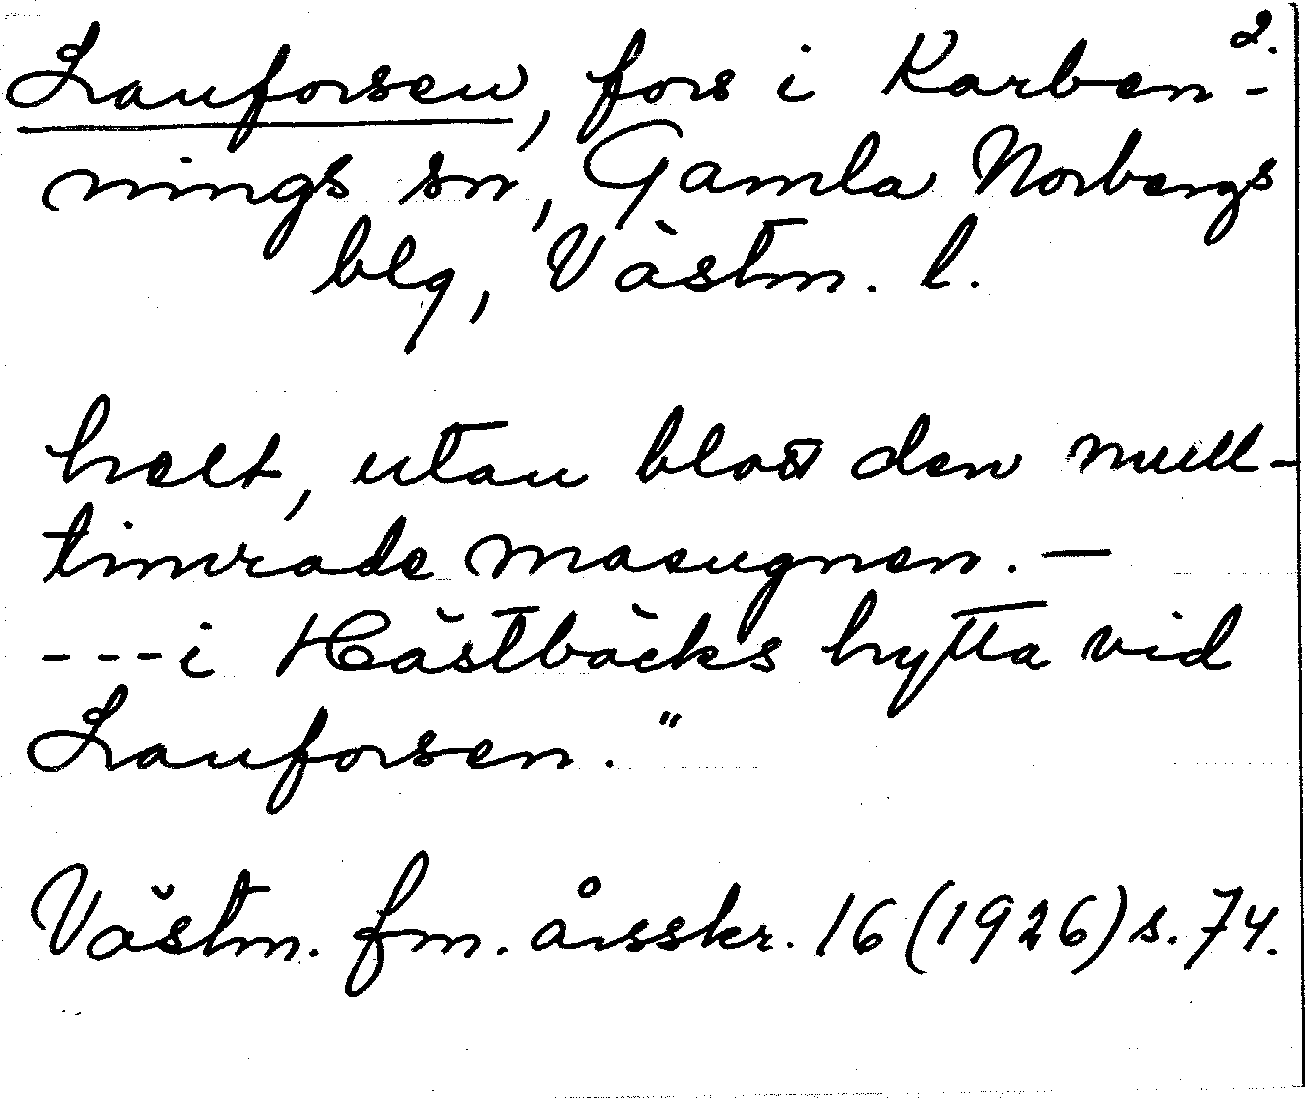 2.
Lanforsen, fors i Karben-
nings sn, Gamla Norbergs
blg, Västm. l.
helt, utan blott den mull-
timrade masugnen. —
---i Hästbäcks hytta vid
Lanforsen."
Västm. fm. årsskr. 16 (1926) s. 74.